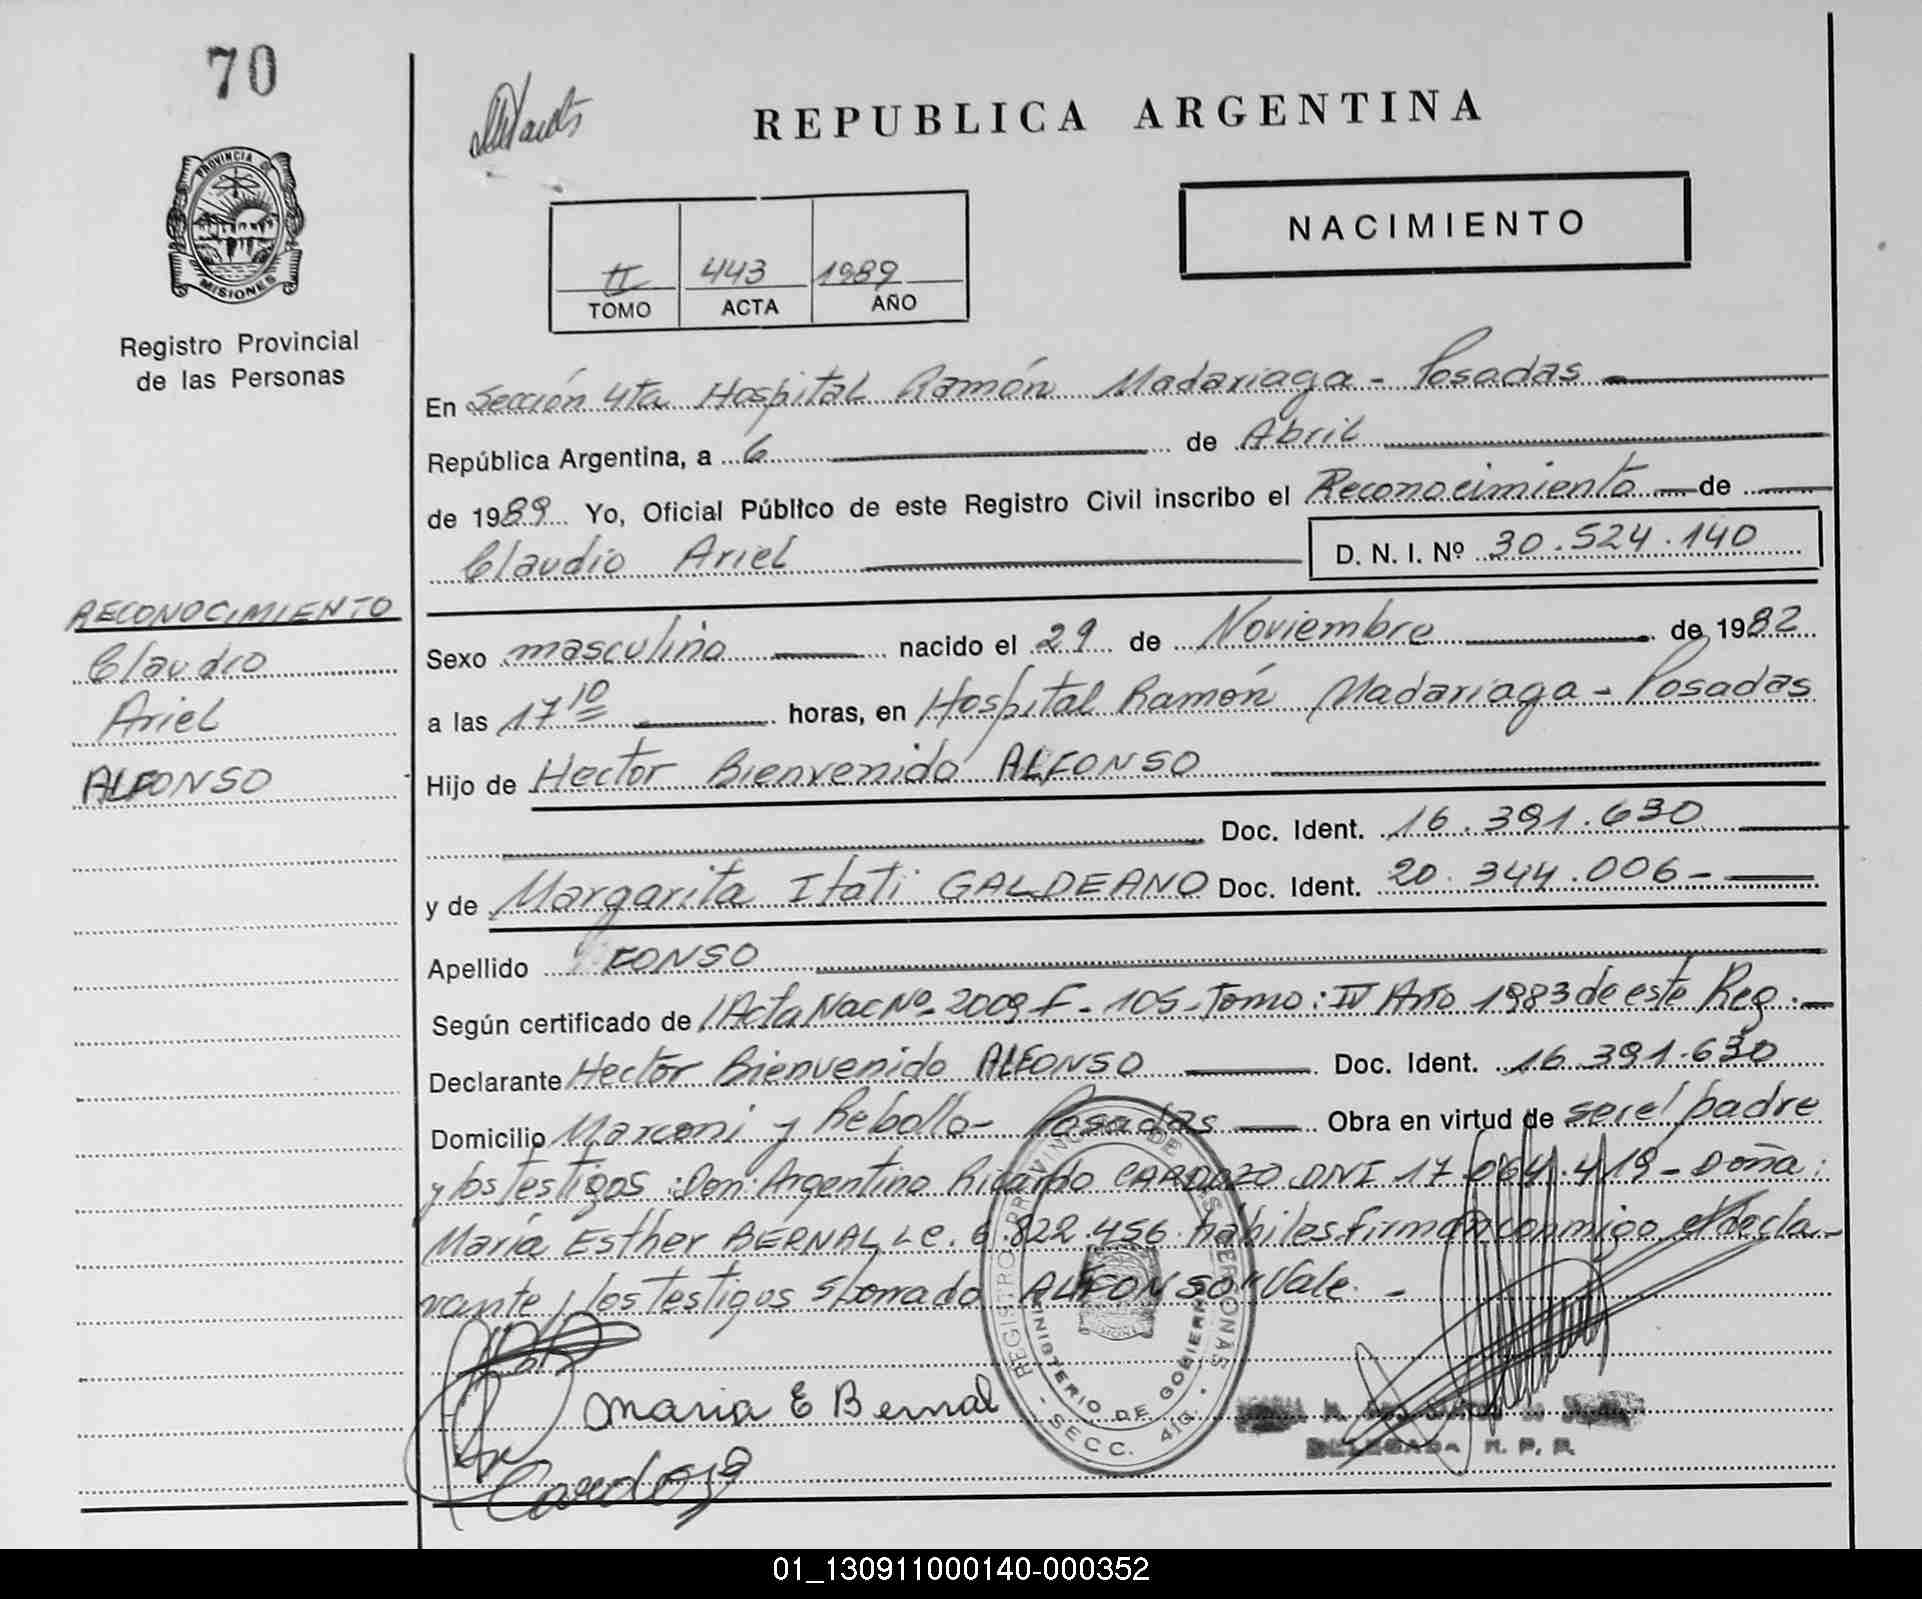 70
REPUBLICA ARGENTINA
PROVINCIA DE
MISIONES
Registro Provincial
de las Personas
NACIMIENTO
II 443 1989
TOMO ACTA AÑO
En Sección 4ta Hospital Ramón Madariaga - Posadas -
República Argentina, a 6 de Abril
de 1989 Yo, Oficial Público de este Registro Civil inscribo el Reconocimiento de
Claudio Ariel D. N. I. Nº 30.524.140
RECONOCIMIENTO
Claudio
Ariel
ALFONSO
Sexo masculino nacido el 29 de Noviembre de 1982
a las 17 10 horas, en Hospital Ramón Madariaga - Posadas
Hijo de Hector Bienvenido ALFONSO
Doc. Ident. 16.391.630
y de Margarita Itati GALDEANO Doc. Ident. 20.344.006-
Apellido FONSO
Según certificado de Acta Nac Nº 2009 F - 105 - Tomo: IV Año 1983 de este Reg.
Declarante Hector Bienvenido ALFONSO Doc. Ident. 16.391.630
Domicilio Marconi y Rebollo - Posadas Obra en virtud de ser el padre
y los testigos: Don: Argentino Ricardo CARDOZO DNI 17.064.419 - Doña:
María Esther BERNAL Le. 6.822.456 hábiles firman conmigo el decla-
rante y los testigos ALFONSO "Vale. -
REGISTRO PROVINCIAL DE LAS PERSONAS
MINISTERIO DE GOBIERNO
- SECC. 4ta. -
Maria E Bernal
Cardozo
DELEGADA R. P. P.
01_130911000140-000352